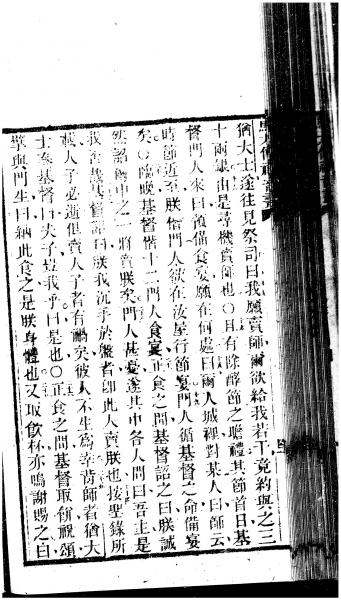 猶大士遂往見祭司曰我願賣師爾欲給我若干竟約與之三
十兩銀由是尋機賣師也〇且有除酵節之瞻禮其節首日基
督門人來曰預備食宴願在何處曰爾入城裡對某人曰師云
時節近至朕偕門人欲在汝屋行節宴門人循基督之命備宴
矣〇臨晚基督偕十二門人食宴正食之間基督語之曰朕誠
然語爾中之一將賣朕矣門人甚憂遂其中各人問曰吾主是
我否哉基督語曰朕我手於盤者即此人賣朕也按聖錄所
載人子必逝但賣人子者有禍矣彼人不生為幸背師者猶大
士奏基督曰夫子豈我乎曰是也〇正食之間基督取餅祝頌
擘與門生曰納此食之是朕身體也又取飲杯亦鳴謝賜之曰